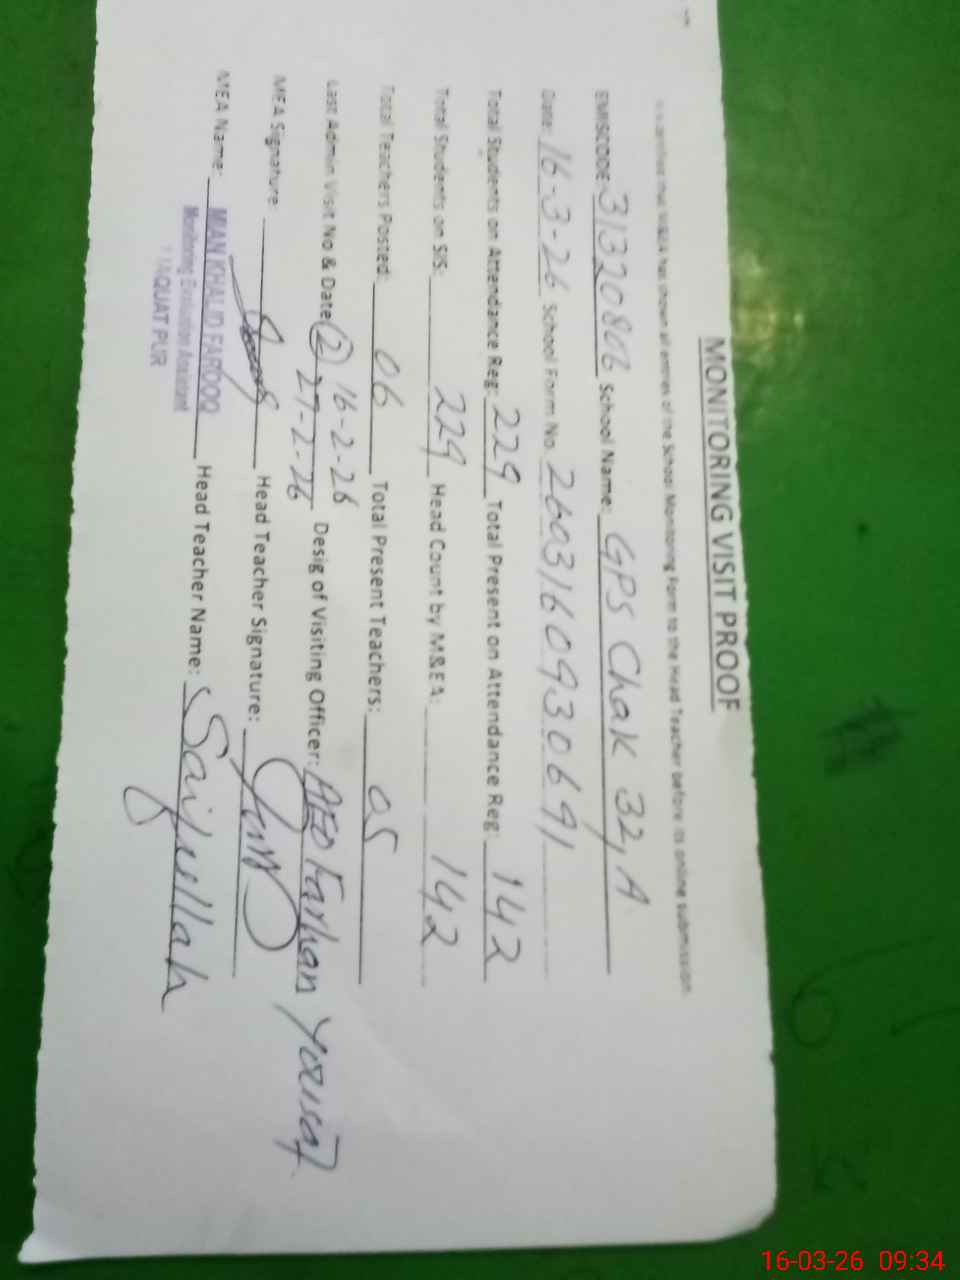 MONITORING VISIT PROOF
It is certified that M&EA has shown all entries of the School Monitoring Form to the Head Teacher before its online submission.
EMISCODE: 31320806 School Name: GPS Chak 32, A
Date: 16-3-26 School Form No. 2603160930691
Total Students on Attendance Reg: 229 Total Present on Attendance Reg: 142
Total Students on SIS: 229 Head Count by M&EA: 142
Total Teachers Posted: 06 Total Present Teachers: 05
Last Admin Visit No & Date: 2 16-2-26 27-2-26 Desig of Visiting Officer: AEO Farhan Yousaf
MEA Signature: Head Teacher Signature:
MEA Name: MIAN KHALID FAROOQ Head Teacher Name: Saifullah
Monitoring Evaluation Assistant
LIAQUAT PUR
16-03-26 09:34